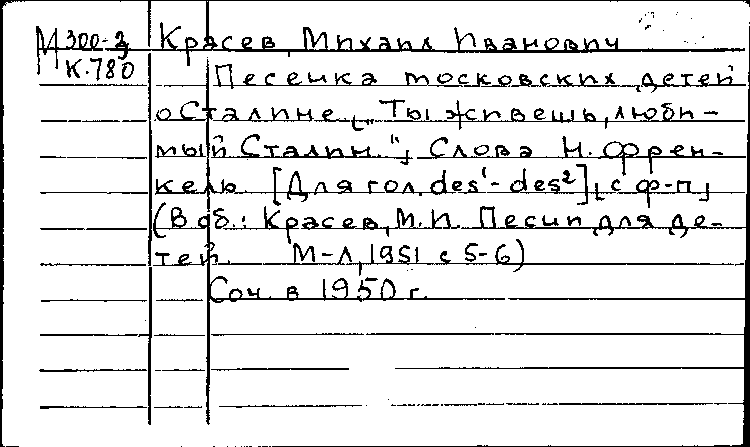 М 300-3 Красев, Михаил Иванович
К.780 Песенка московских детей
о Сталине [„Ты живешь, люби-
мый Сталин."] Слова Н. Френ-
кель. [Для гол. des¹- des²] [с ф-п]
(В сб.: Красев, М.И. Песни для де-
тей. М-Л, 1951 с 5-6)
Соч. в 1950 г.